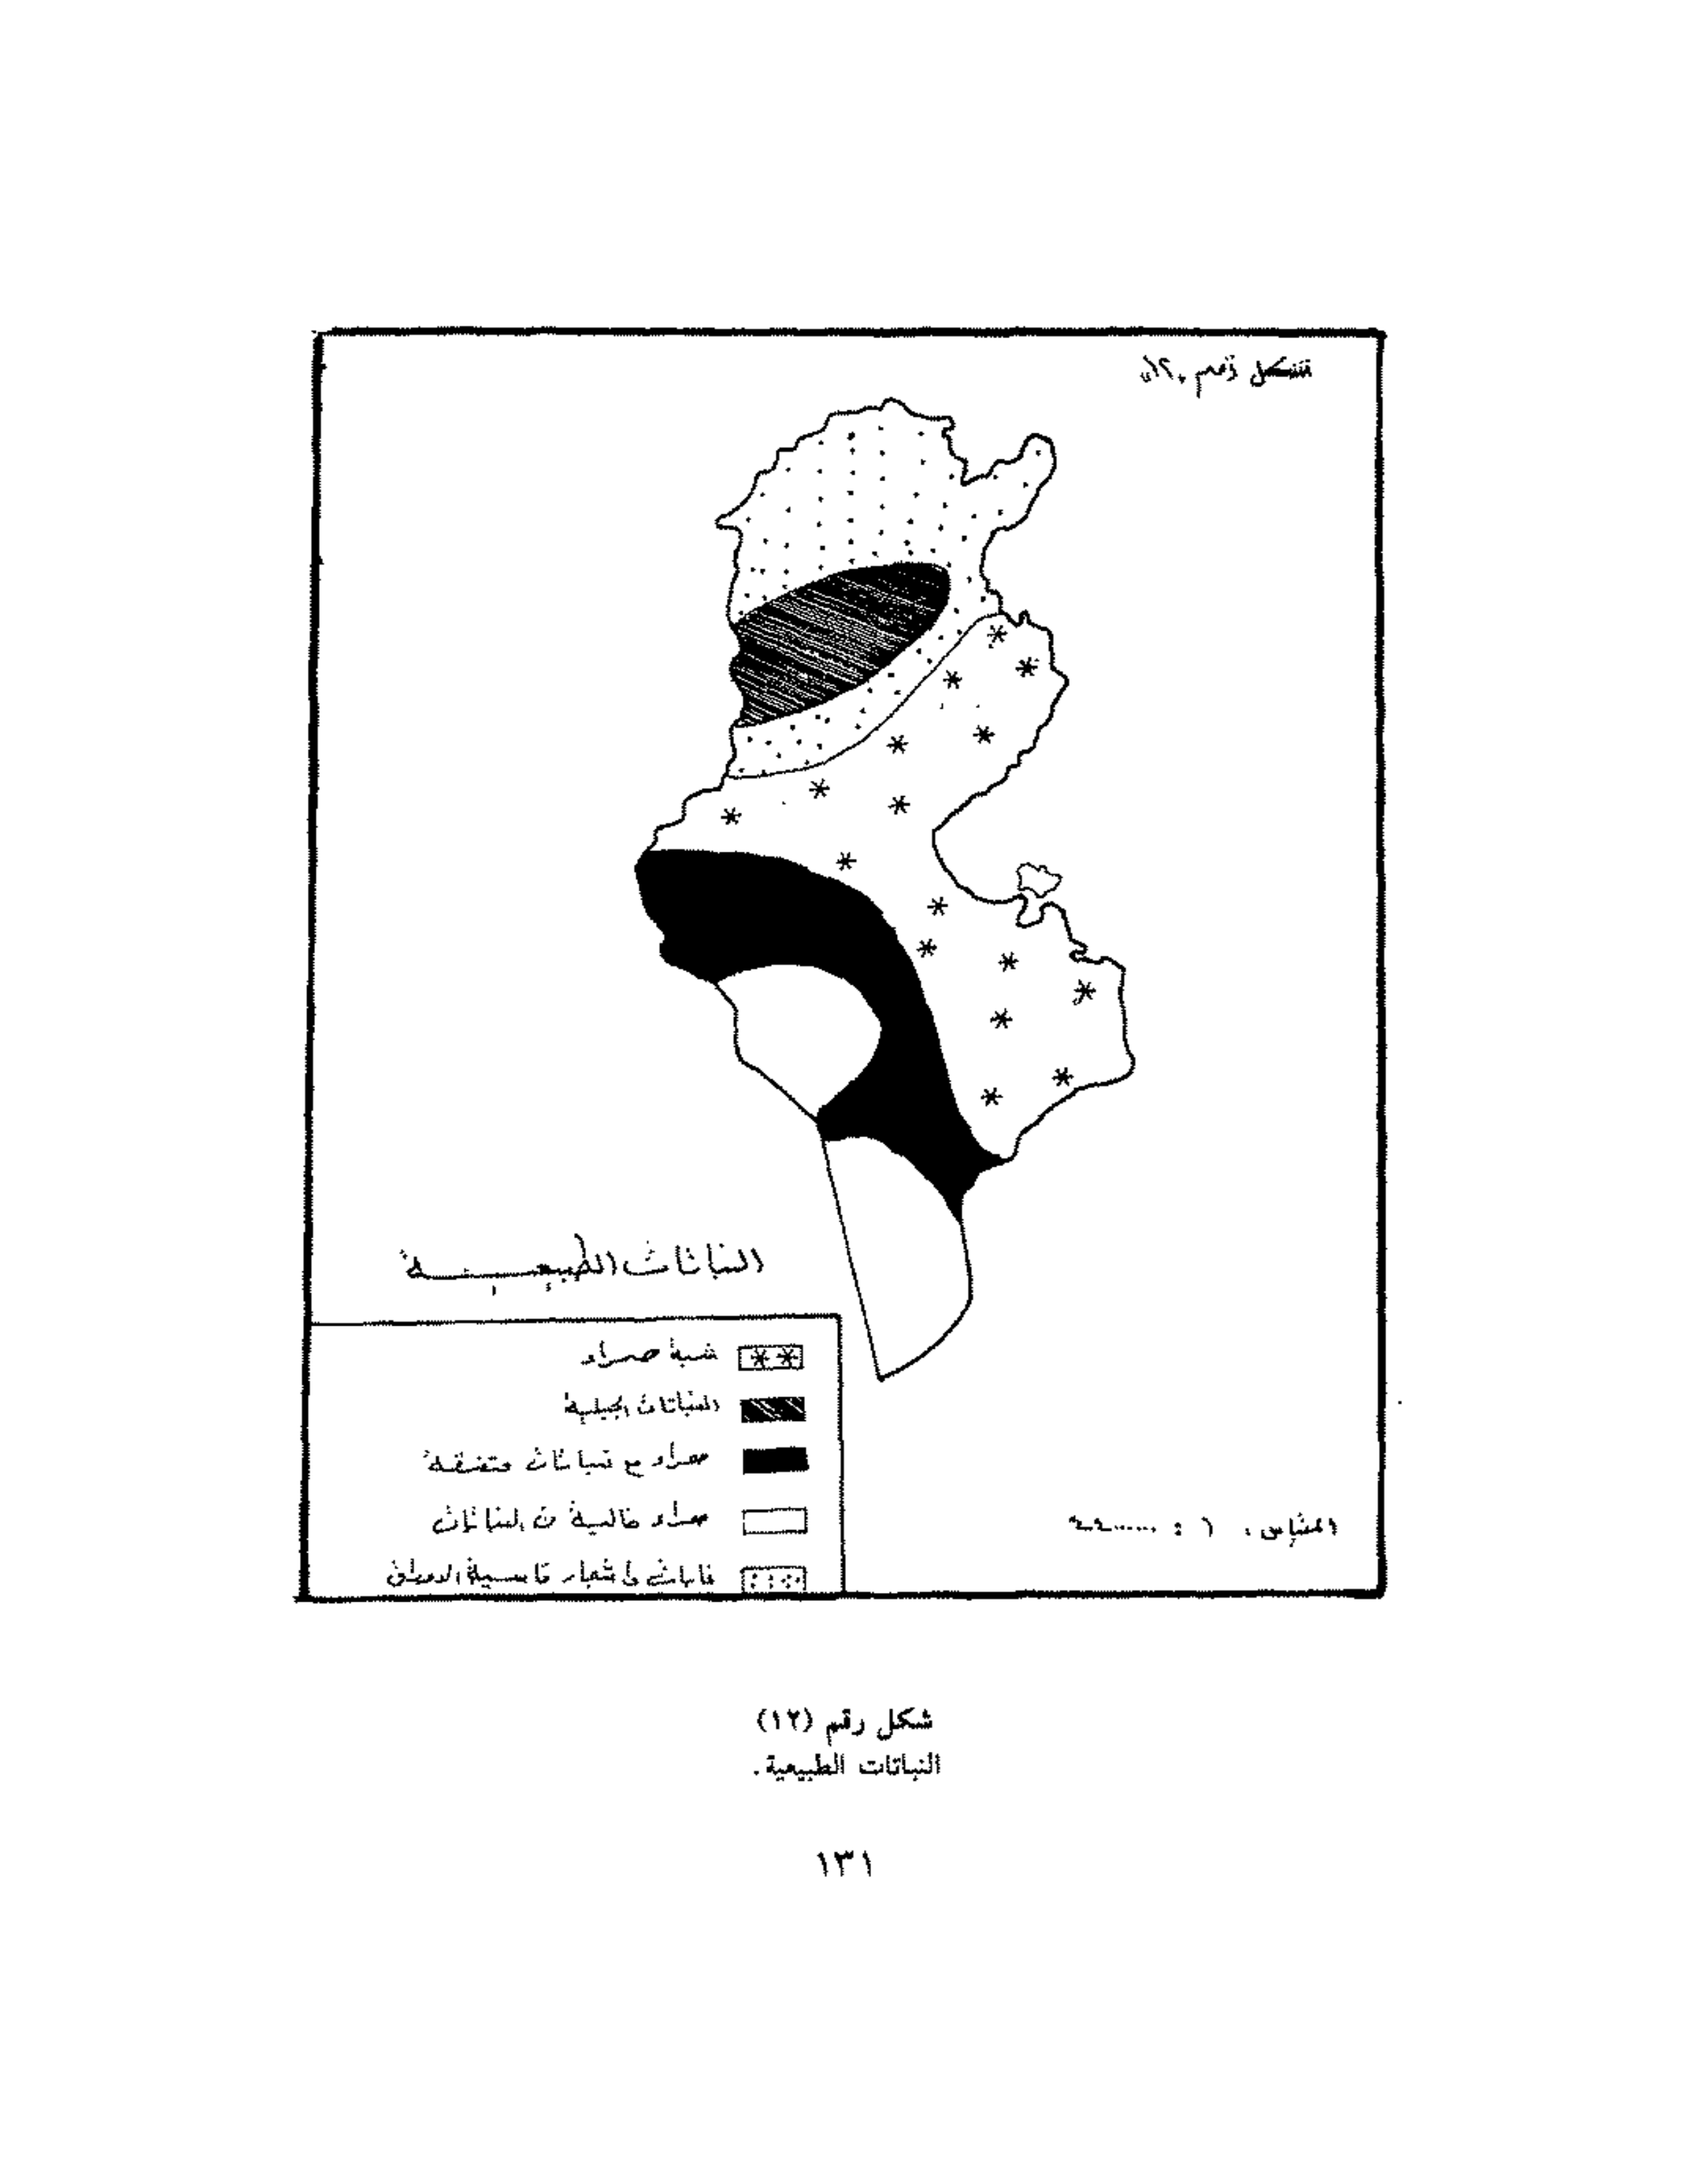 شكل رقم «١٢»
النباتات الطبيعية
شبة صحراء
النباتات الجبلية
صحراء مع نباتات متفرقة
صحراء خالية من النباتات
غابات وأشجار قاسية الاوراق
المقياس ١ :
شكل رقم (١٢)
النباتات الطبيعية.
١٣١